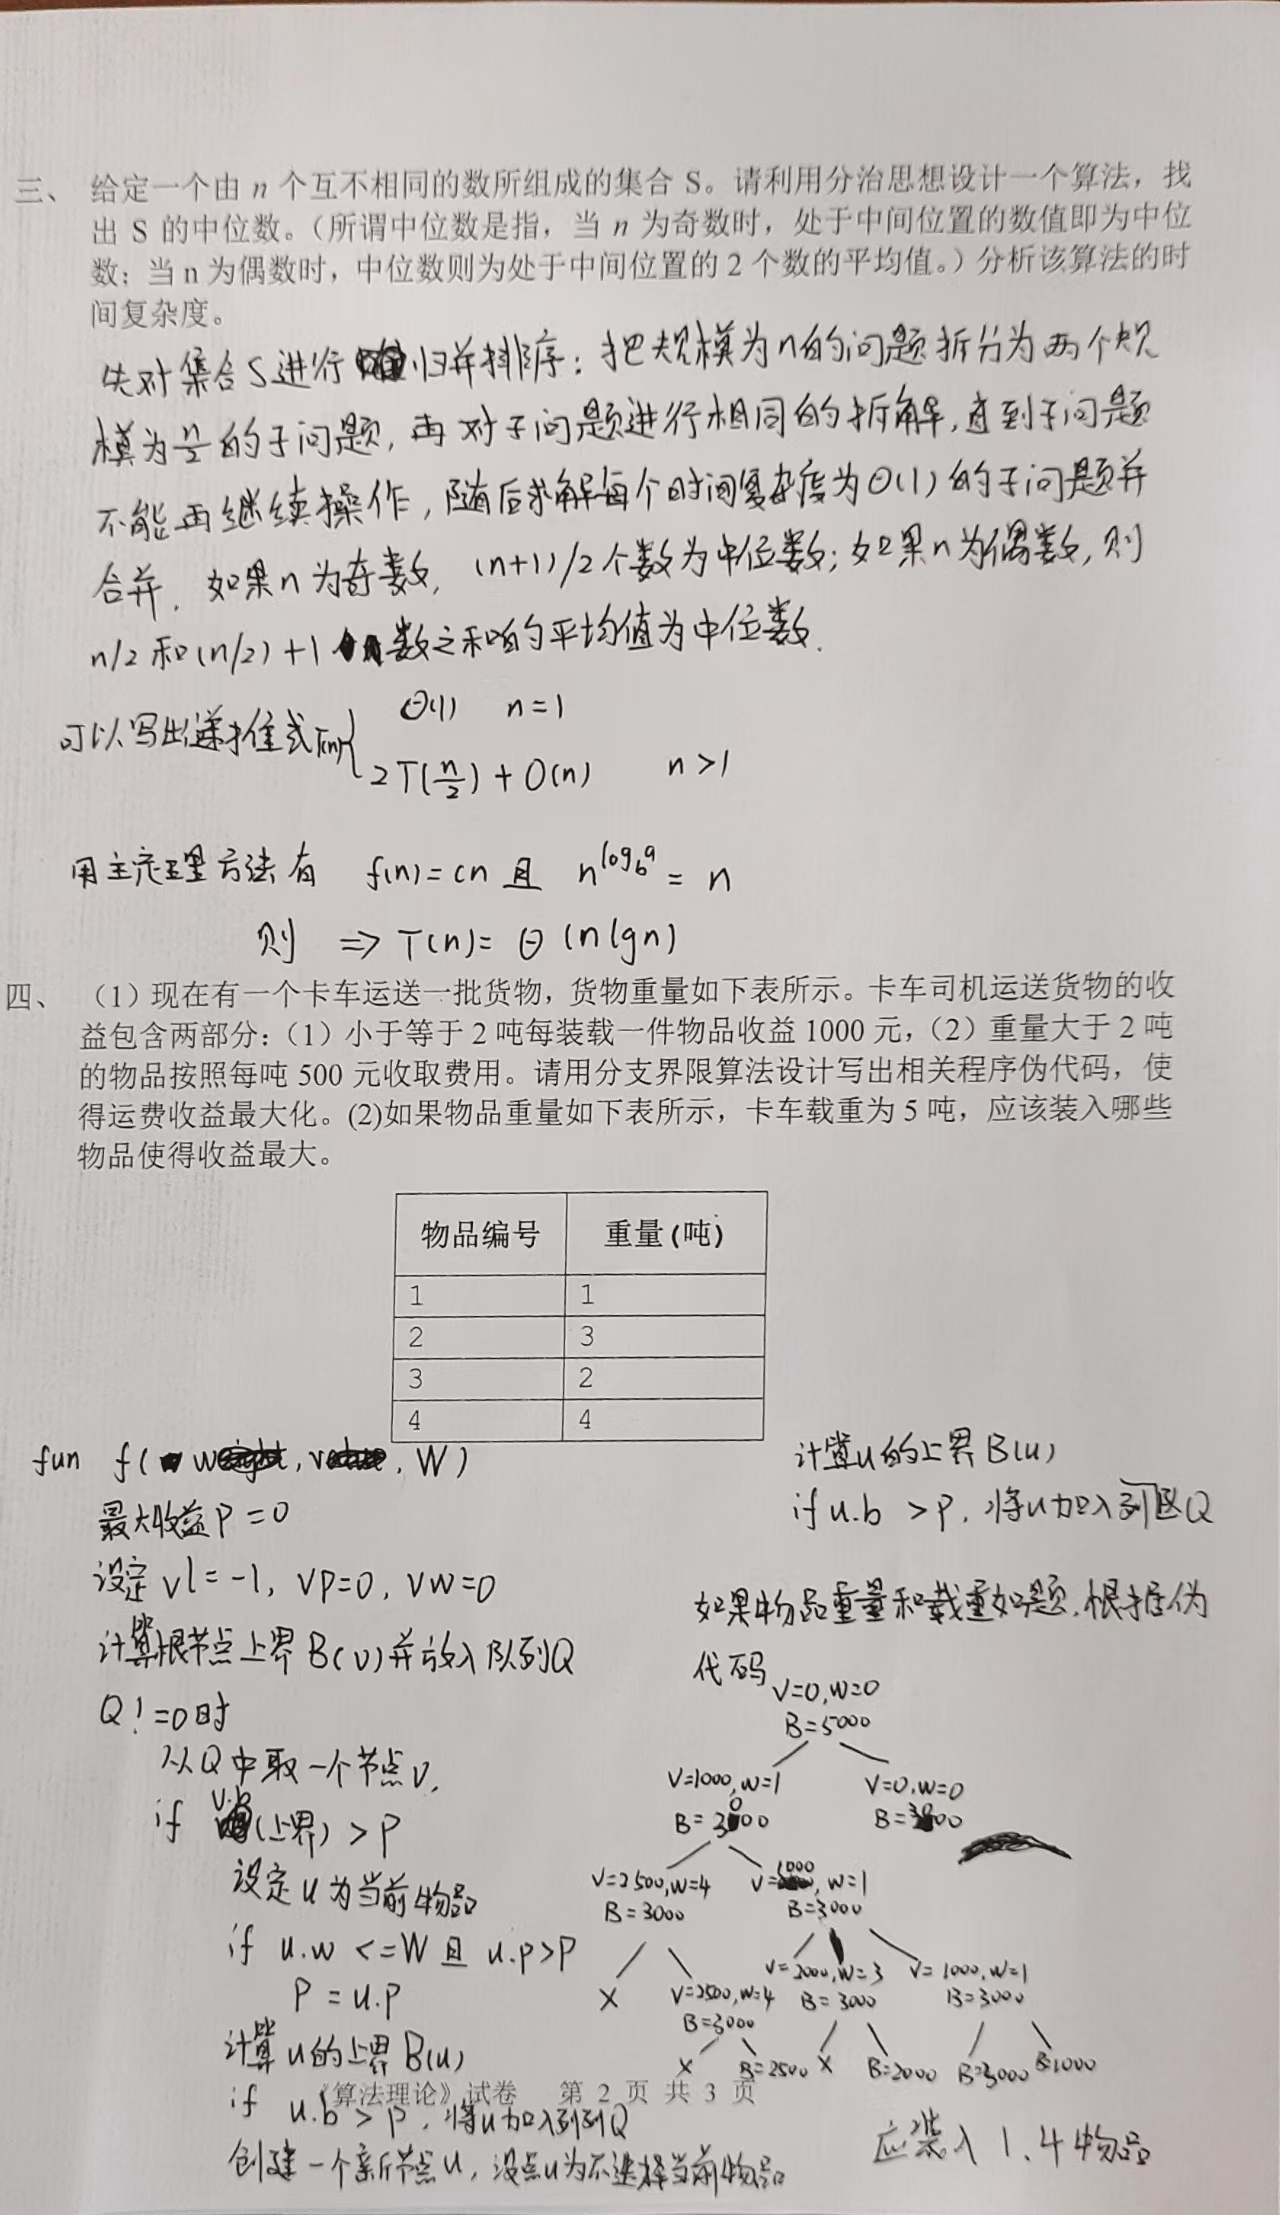 三、 给定一个由 n 个互不相同的数所组成的集合 S。请利用分治思想设计一个算法，找
出 S 的中位数。（所谓中位数是指，当 n 为奇数时，处于中间位置的数值即为中位
数；当 n 为偶数时，中位数则为处于中间位置的 2 个数的平均值。）分析该算法的时
间复杂度。
先对集合S进行归并排序：把规模为n的问题拆分为两个规
模为n/2的子问题，再对子问题进行相同的拆解，直到子问题
不能再继续操作，随后求解每个时间复杂度为Θ(1)的子问题并
合并．如果n为奇数，(n+1)/2个数为中位数；如果n为偶数，则
n/2和(n/2)+1 数之和的平均值为中位数．
可以写出递推式T(n){ Θ(1) n=1
2T(n/2)+O(n) n>1
用主定理方法有 f(n)=cn 且 n^log_b a = n
则 => T(n)= Θ(nlgn)
四、 （1）现在有一个卡车运送一批货物，货物重量如下表所示。卡车司机运送货物的收
益包含两部分：（1）小于等于 2 吨每装载一件物品收益 1000 元，（2）重量大于 2 吨
的物品按照每吨 500 元收取费用。请用分支界限算法设计写出相关程序伪代码，使
得运费收益最大化。(2)如果物品重量如下表所示，卡车载重为 5 吨，应该装入哪些
物品使得收益最大。
物品编号 重量(吨)
1 1
2 3
3 2
4 4
fun f( w, v, W)
最大收益P=0
设定 vl=-1, vp=0, vw=0
计算根节点上界B(v)并放入队列Q
Q!=0时
从Q中取一个节点v,
if v.b(上界)>P
设定u为当前物品
if u.w <=W 且 u.p>P
P=u.p
计算u的上界B(u)
if u.b > P, 将u加入到列Q
《算法理论》试卷 第 2 页 共 3 页
创建一个新节点u, 设点u为不选择当前物品
计算u的上界B(u)
if u.b >P, 将u加入列区Q
如果物品重量和载重如题，根据伪
代码
V=0,W=0
B=5000
V=1000,W=1 V=0,W=0
B=3000
V=2500,W=4 V=1000,W=1
B=3000 B=3000
X V=2500,W=4 V=2000,W=3 V=1000,W=1
B=3000 B=3000 B=3000
X B=2500 X B=2000 B=3000 B=1000
应装入1.4物品